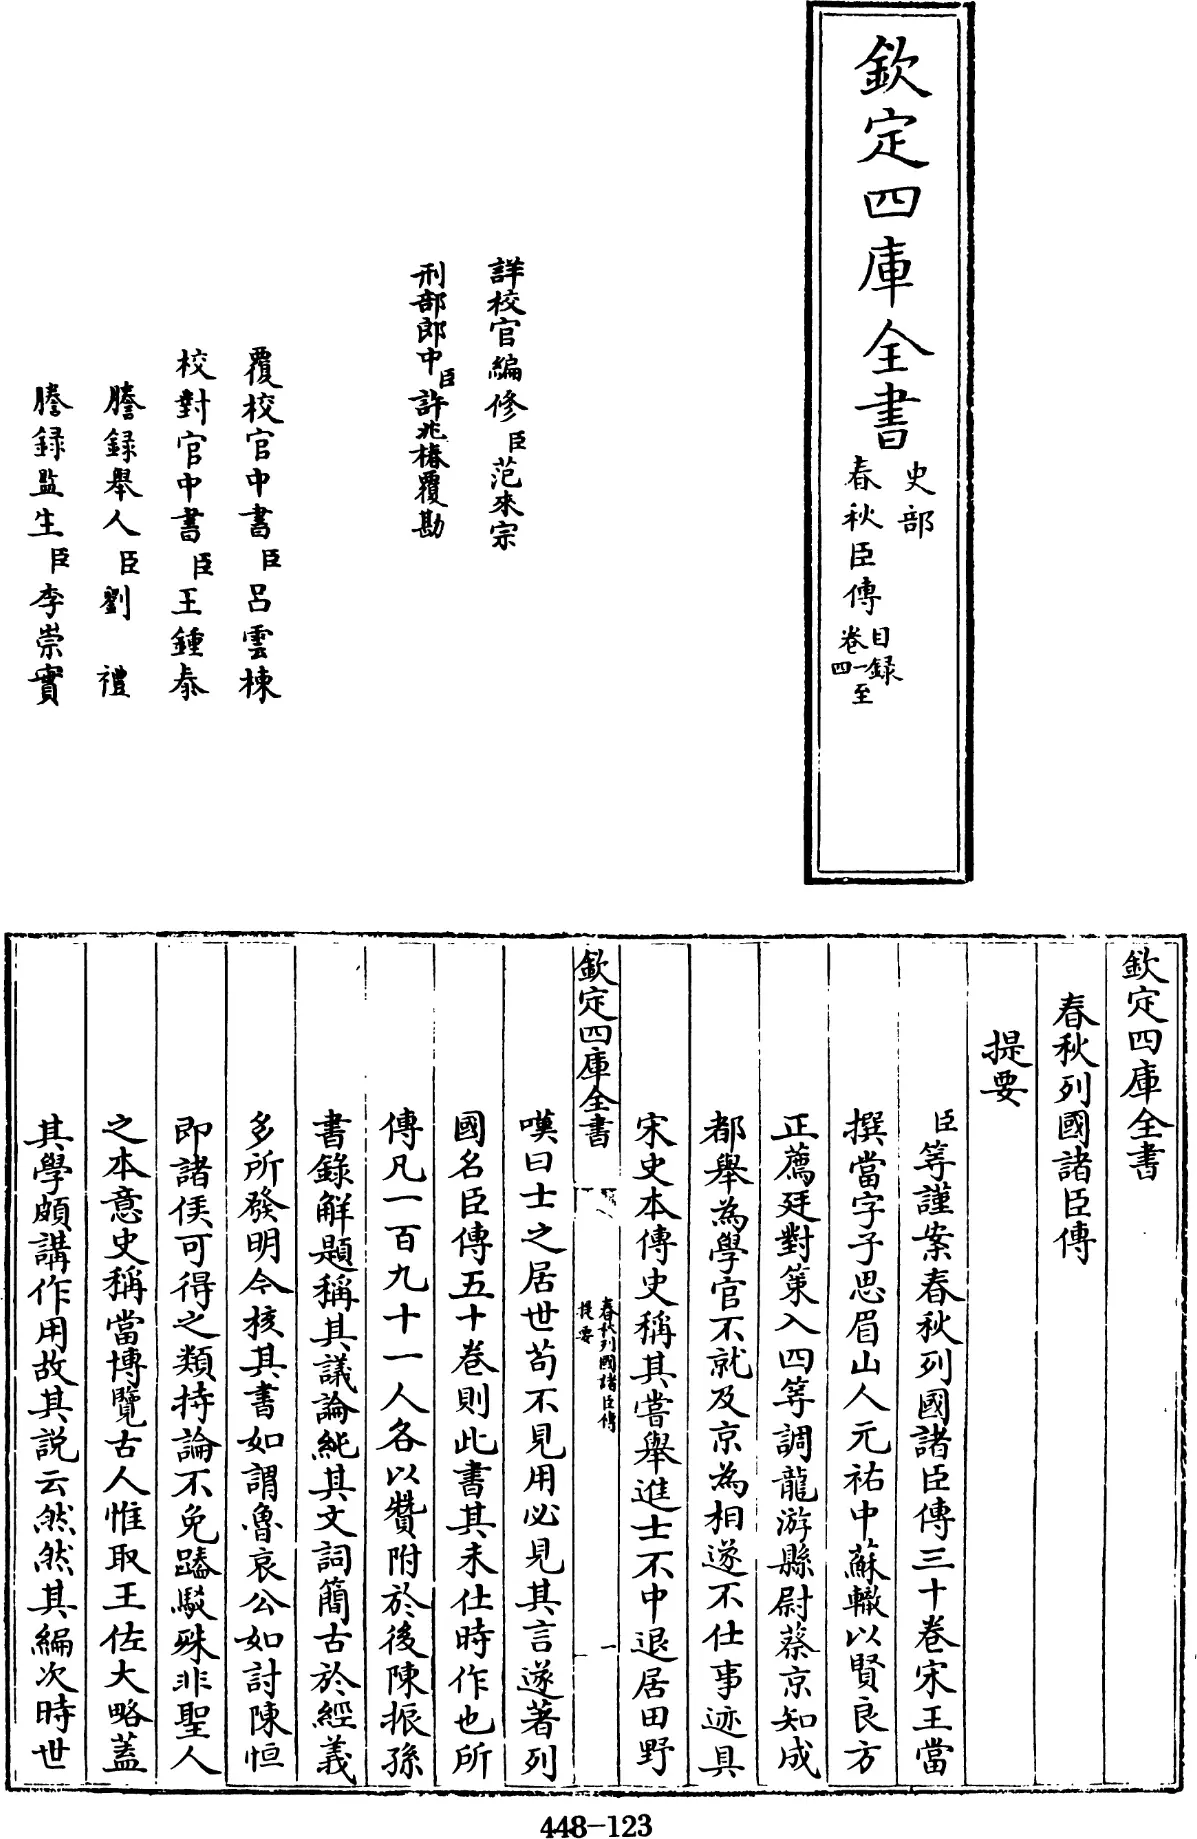 欽定四庫全書
史部
春秋臣傳
目録
卷一至
四
詳校官編修臣范來宗
刑部郎中臣許兆椿覆勘
覆校官中書臣呂雲棟
校對官中書臣王鍾泰
謄録舉人臣劉禮
謄録監生臣李崇實
欽定四庫全書
春秋列國諸臣傳
提要
臣等謹案春秋列國諸臣傳三十卷宋王當
撰當字子思眉山人元祐中蘇轍以賢良方
正薦廷對策入四等調龍游縣尉蔡京知成
都舉為學官不就及京為相遂不仕事迹具
宋史本傳史稱其嘗舉進士不中退居田野
欽定四庫全書
春秋列國諸臣傳
提要
一
嘆曰士之居世苟不見用必見其言遂著列
國名臣傳五十卷則此書其未仕時作也所
傳凡一百九十一人各以贊附於後陳振孫
書錄解題稱其議論純其文詞簡古於經義
多所發明今核其書如謂魯哀公如討陳恒
即諸侯可得之類持論不免踳駁殊非聖人
之本意史稱當博覽古人惟取王佐大略蓋
其學頗講作用故其説云然然其編次時世
448-123